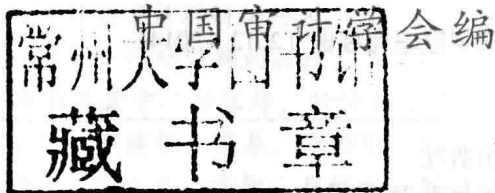 中国审计学会编
常州大学图书馆
藏书章